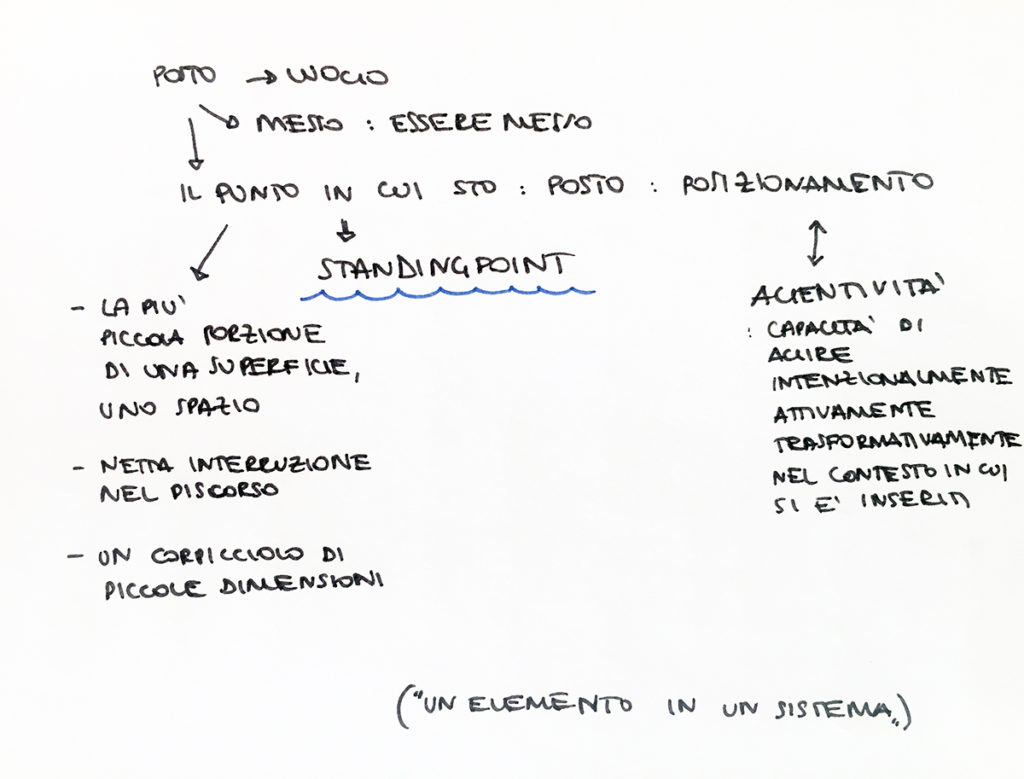 POSTO → LUOGO
MESSO : ESSERE MESSO
IL PUNTO IN CUI STO : POSTO : POSIZIONAMENTO
STANDINGPOINT
- LA PIU'
PICCOLA PORZIONE
DI UNA SUPERFICIE,
UNO SPAZIO
- NETTA INTERRUZIONE
NEL DISCORSO
- UN CORPICCIOLO DI
PICCOLE DIMENSIONI
AGENTIVITA'
: CAPACITA' DI
AGIRE
INTENZIONALMENTE
ATTIVAMENTE
TRASFORMATIVAMENTE
NEL CONTESTO IN CUI
SI E' INSERITI
("UN ELEMENTO IN UN SISTEMA„)